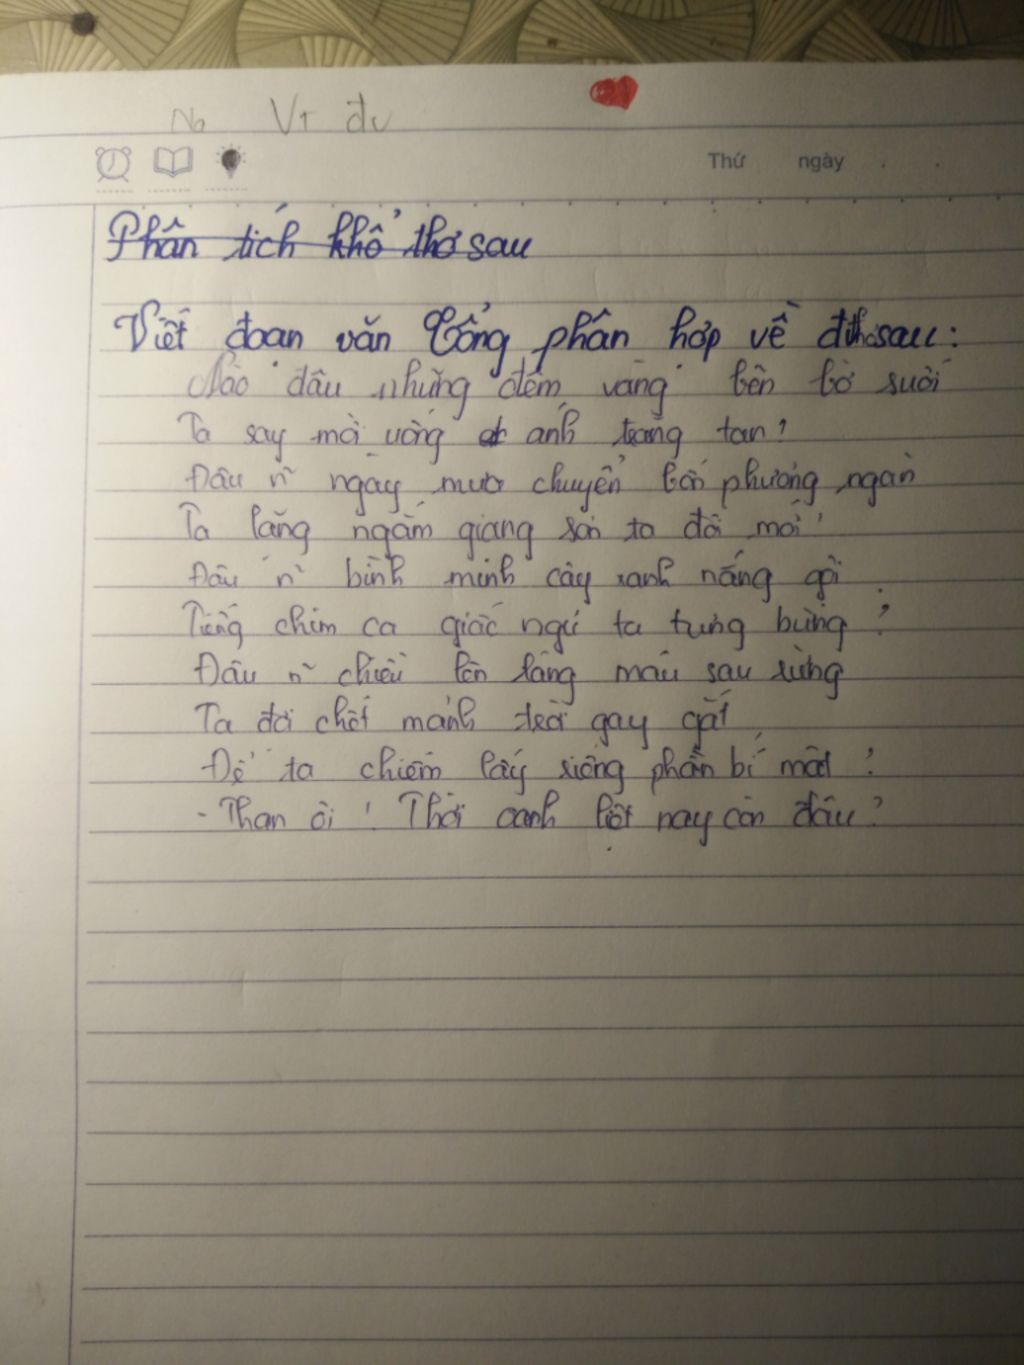 Vt đv
Thứ ngày
Phân tích khổ thơ sau
Viết đoan văn Tổng phân hợp về đthơ sau:
Nào đâu những đêm vàng bên bờ suối
Ta say mồi uống ánh trăng tan?
Đâu n~ ngày mưa chuyển bốn phương ngàn
Ta lặng ngắm giang sơn ta đổi mới?
Đâu n~ bình minh cây xanh nắng gội
Tiếng chim ca giấc ngủ ta tưng bừng?
Đâu n~ chiều lên láng máu sau rừng
Ta đợi chết mảnh trời gay gắt
Để ta chiếm lấy riêng phần bí mật?
- Than ôi! Thời oanh liệt nay còn đâu?